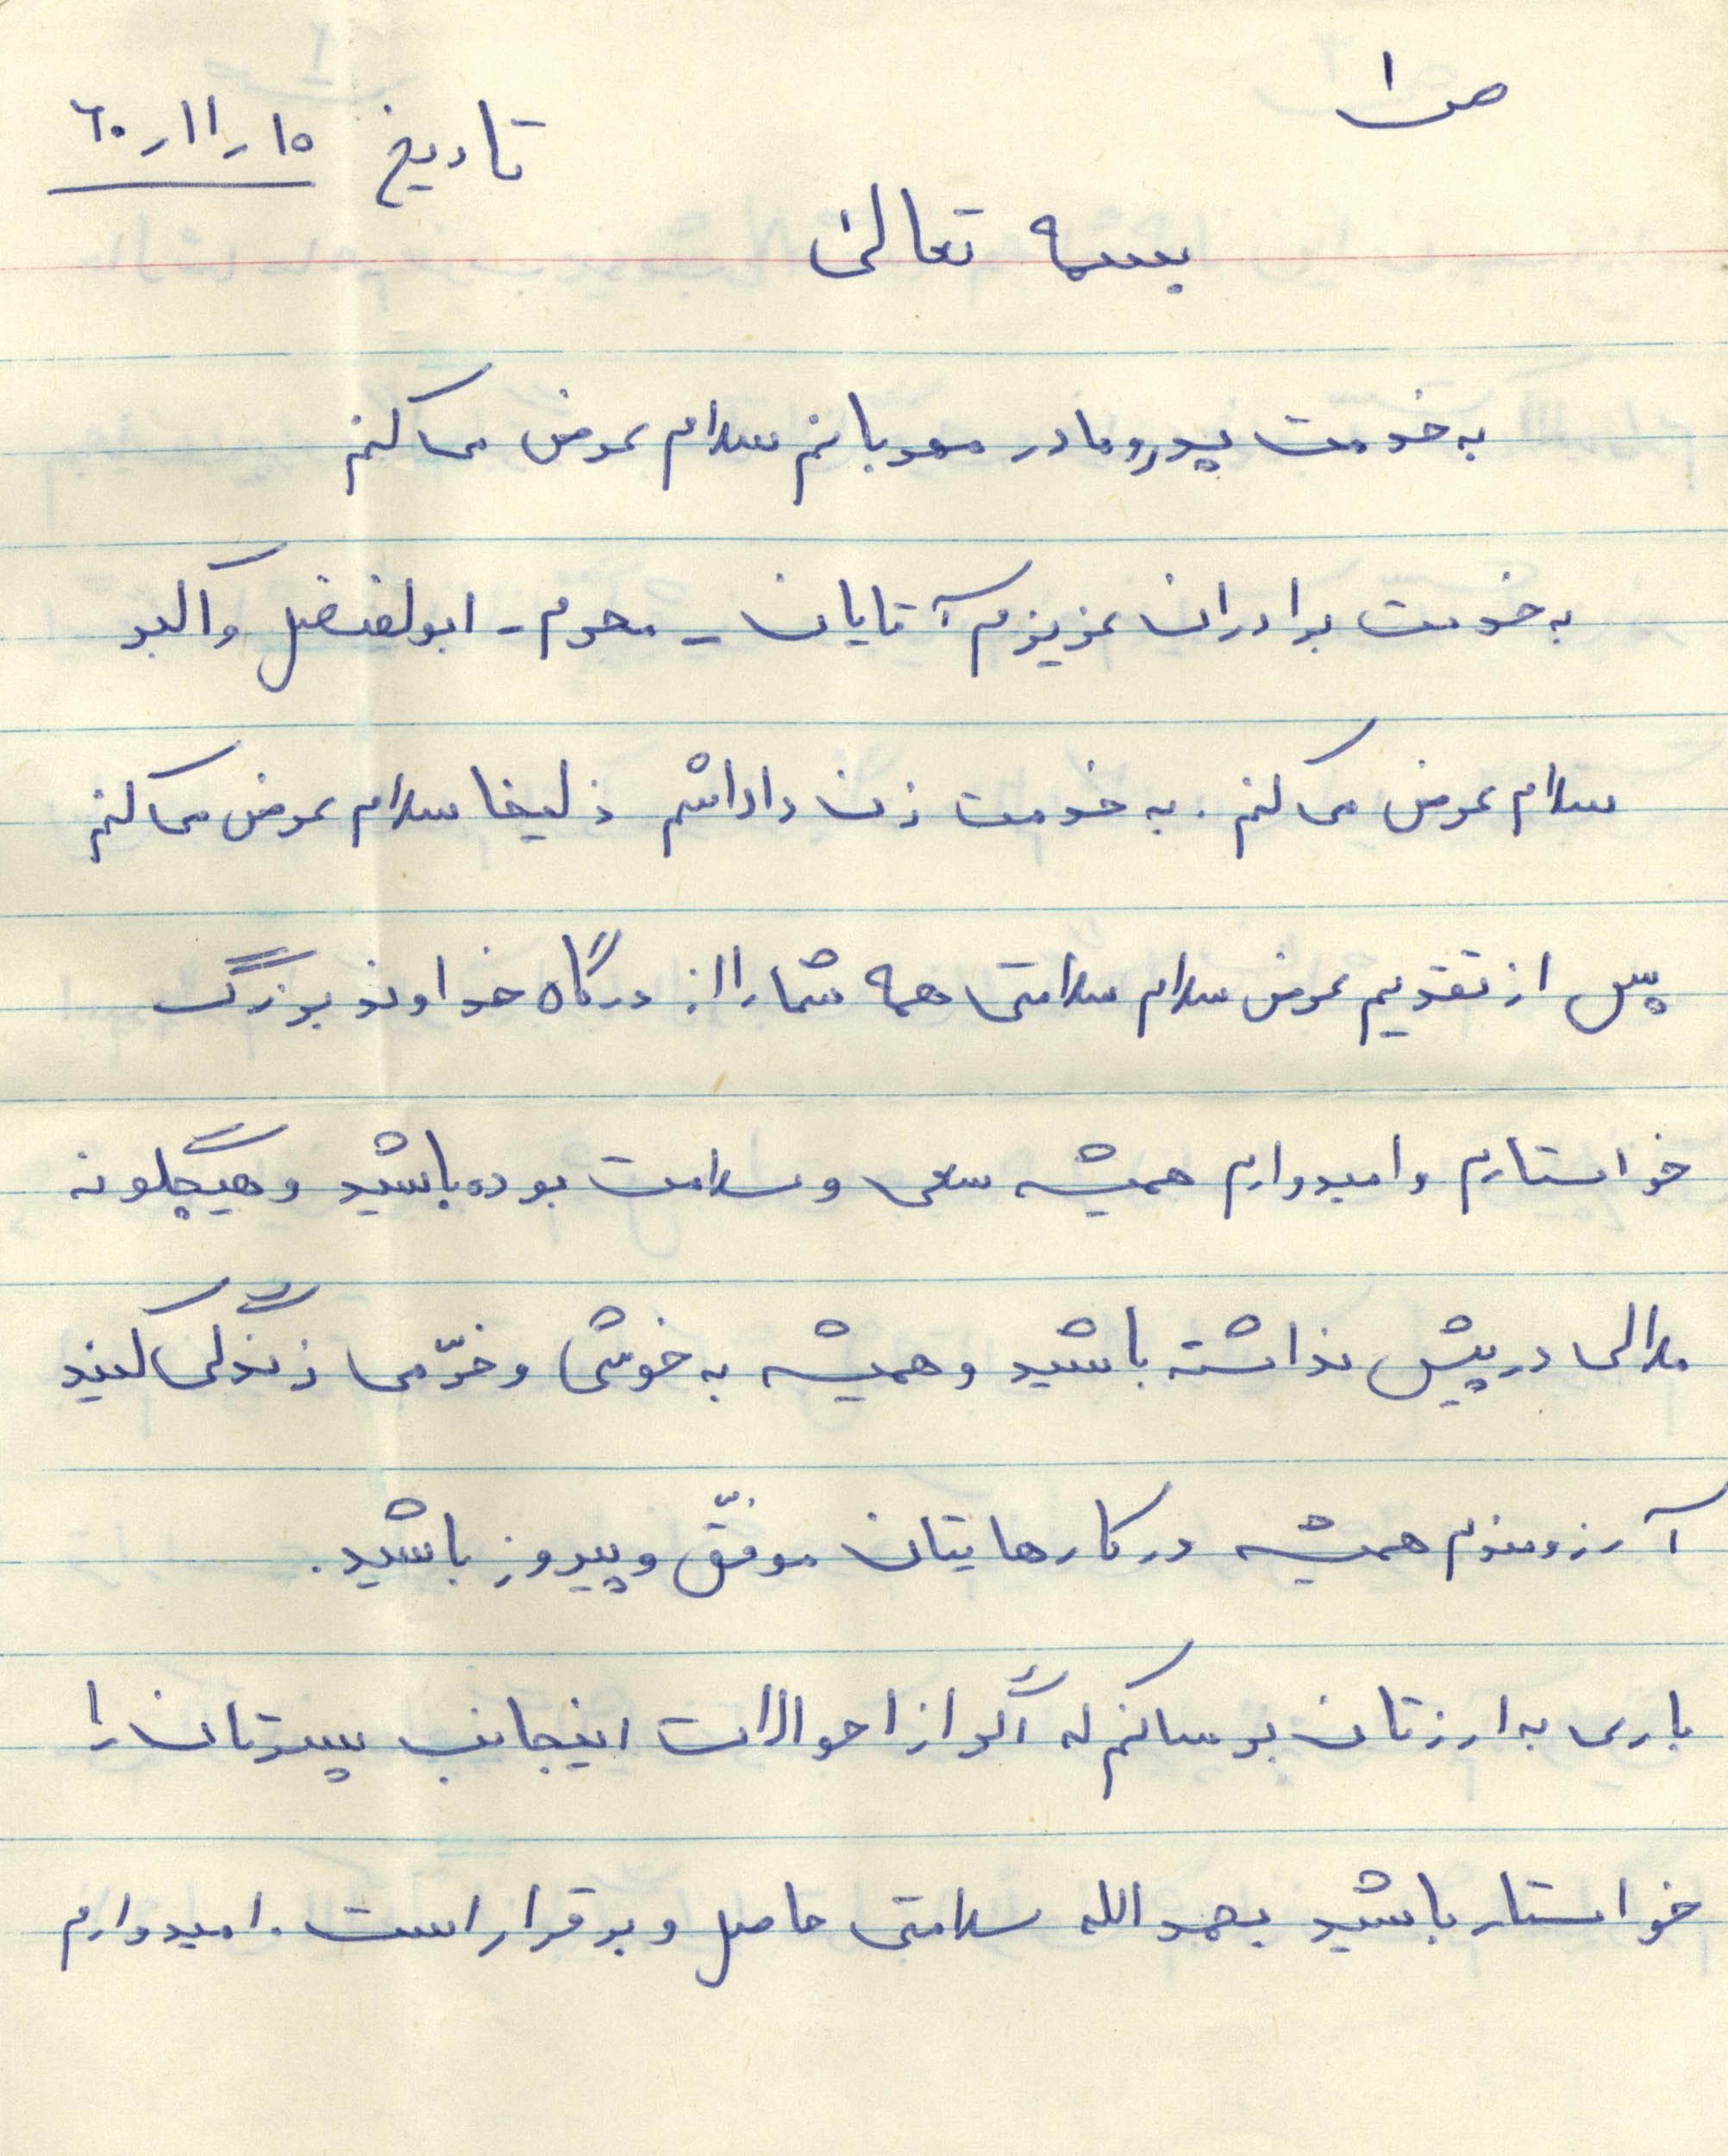 ص ۱
تاریخ ۱۵ر۱۱ر۶۰
بسمه تعالی
به خدمت پدرومادر مهربانم سلام عرض می کنم
به خدمت برادران عزیزم آقایان - محرم - ابولفضل و اکبر
سلام عرض می کنم . به خدمت زن داداشم ذلیخا سلام عرض می کنم
پس از تقدیم عرض سلام سلامتی همه شما را از درگاه خداوند بزرگ
خواستارم و امیدوارم همیشه سعی و سلامت بوده باشید و هیچگونه
ملالی در پیش نداشته باشید و همیشه به خوشی و خرّمی زندگی کنید
آرزومندم همیشه در کارهایتان موفّق و پیروز باشید .
باری به ارزتان برسانم که اگر از احوالات اینجانب پسرتان را
خواستار باشید بحمدالله سلامتی حاصل و برقرار است . امیدوارم